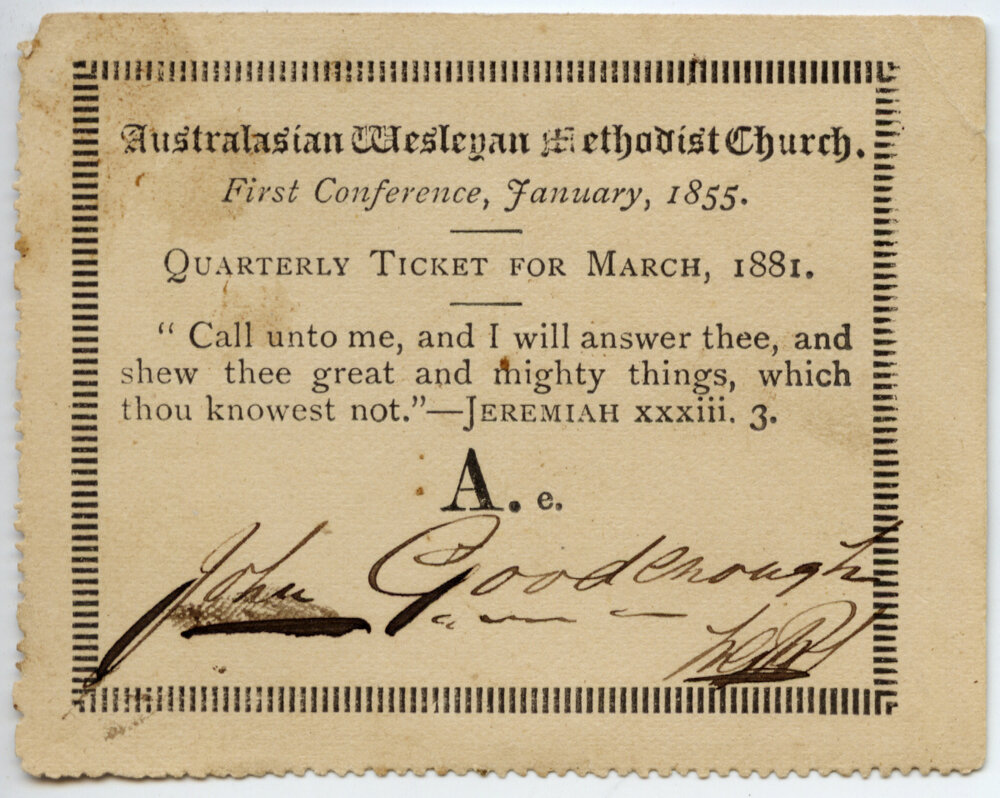 Australasian Wesleyan Methodist Church.
First Conference, January, 1855.
Quarterly Ticket for March, 1881.
“ Call unto me, and I will answer thee, and
shew thee great and mighty things, which
thou knowest not.”—Jeremiah xxxiii. 3.
A. e.
John Goodenough